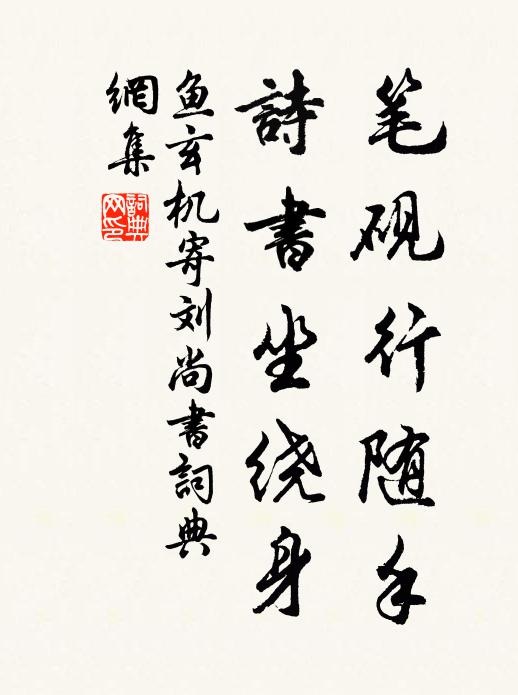 笔砚行随手
詩書坐绕身
鱼玄机寄刘尚書詞典
網集
詞典
网印